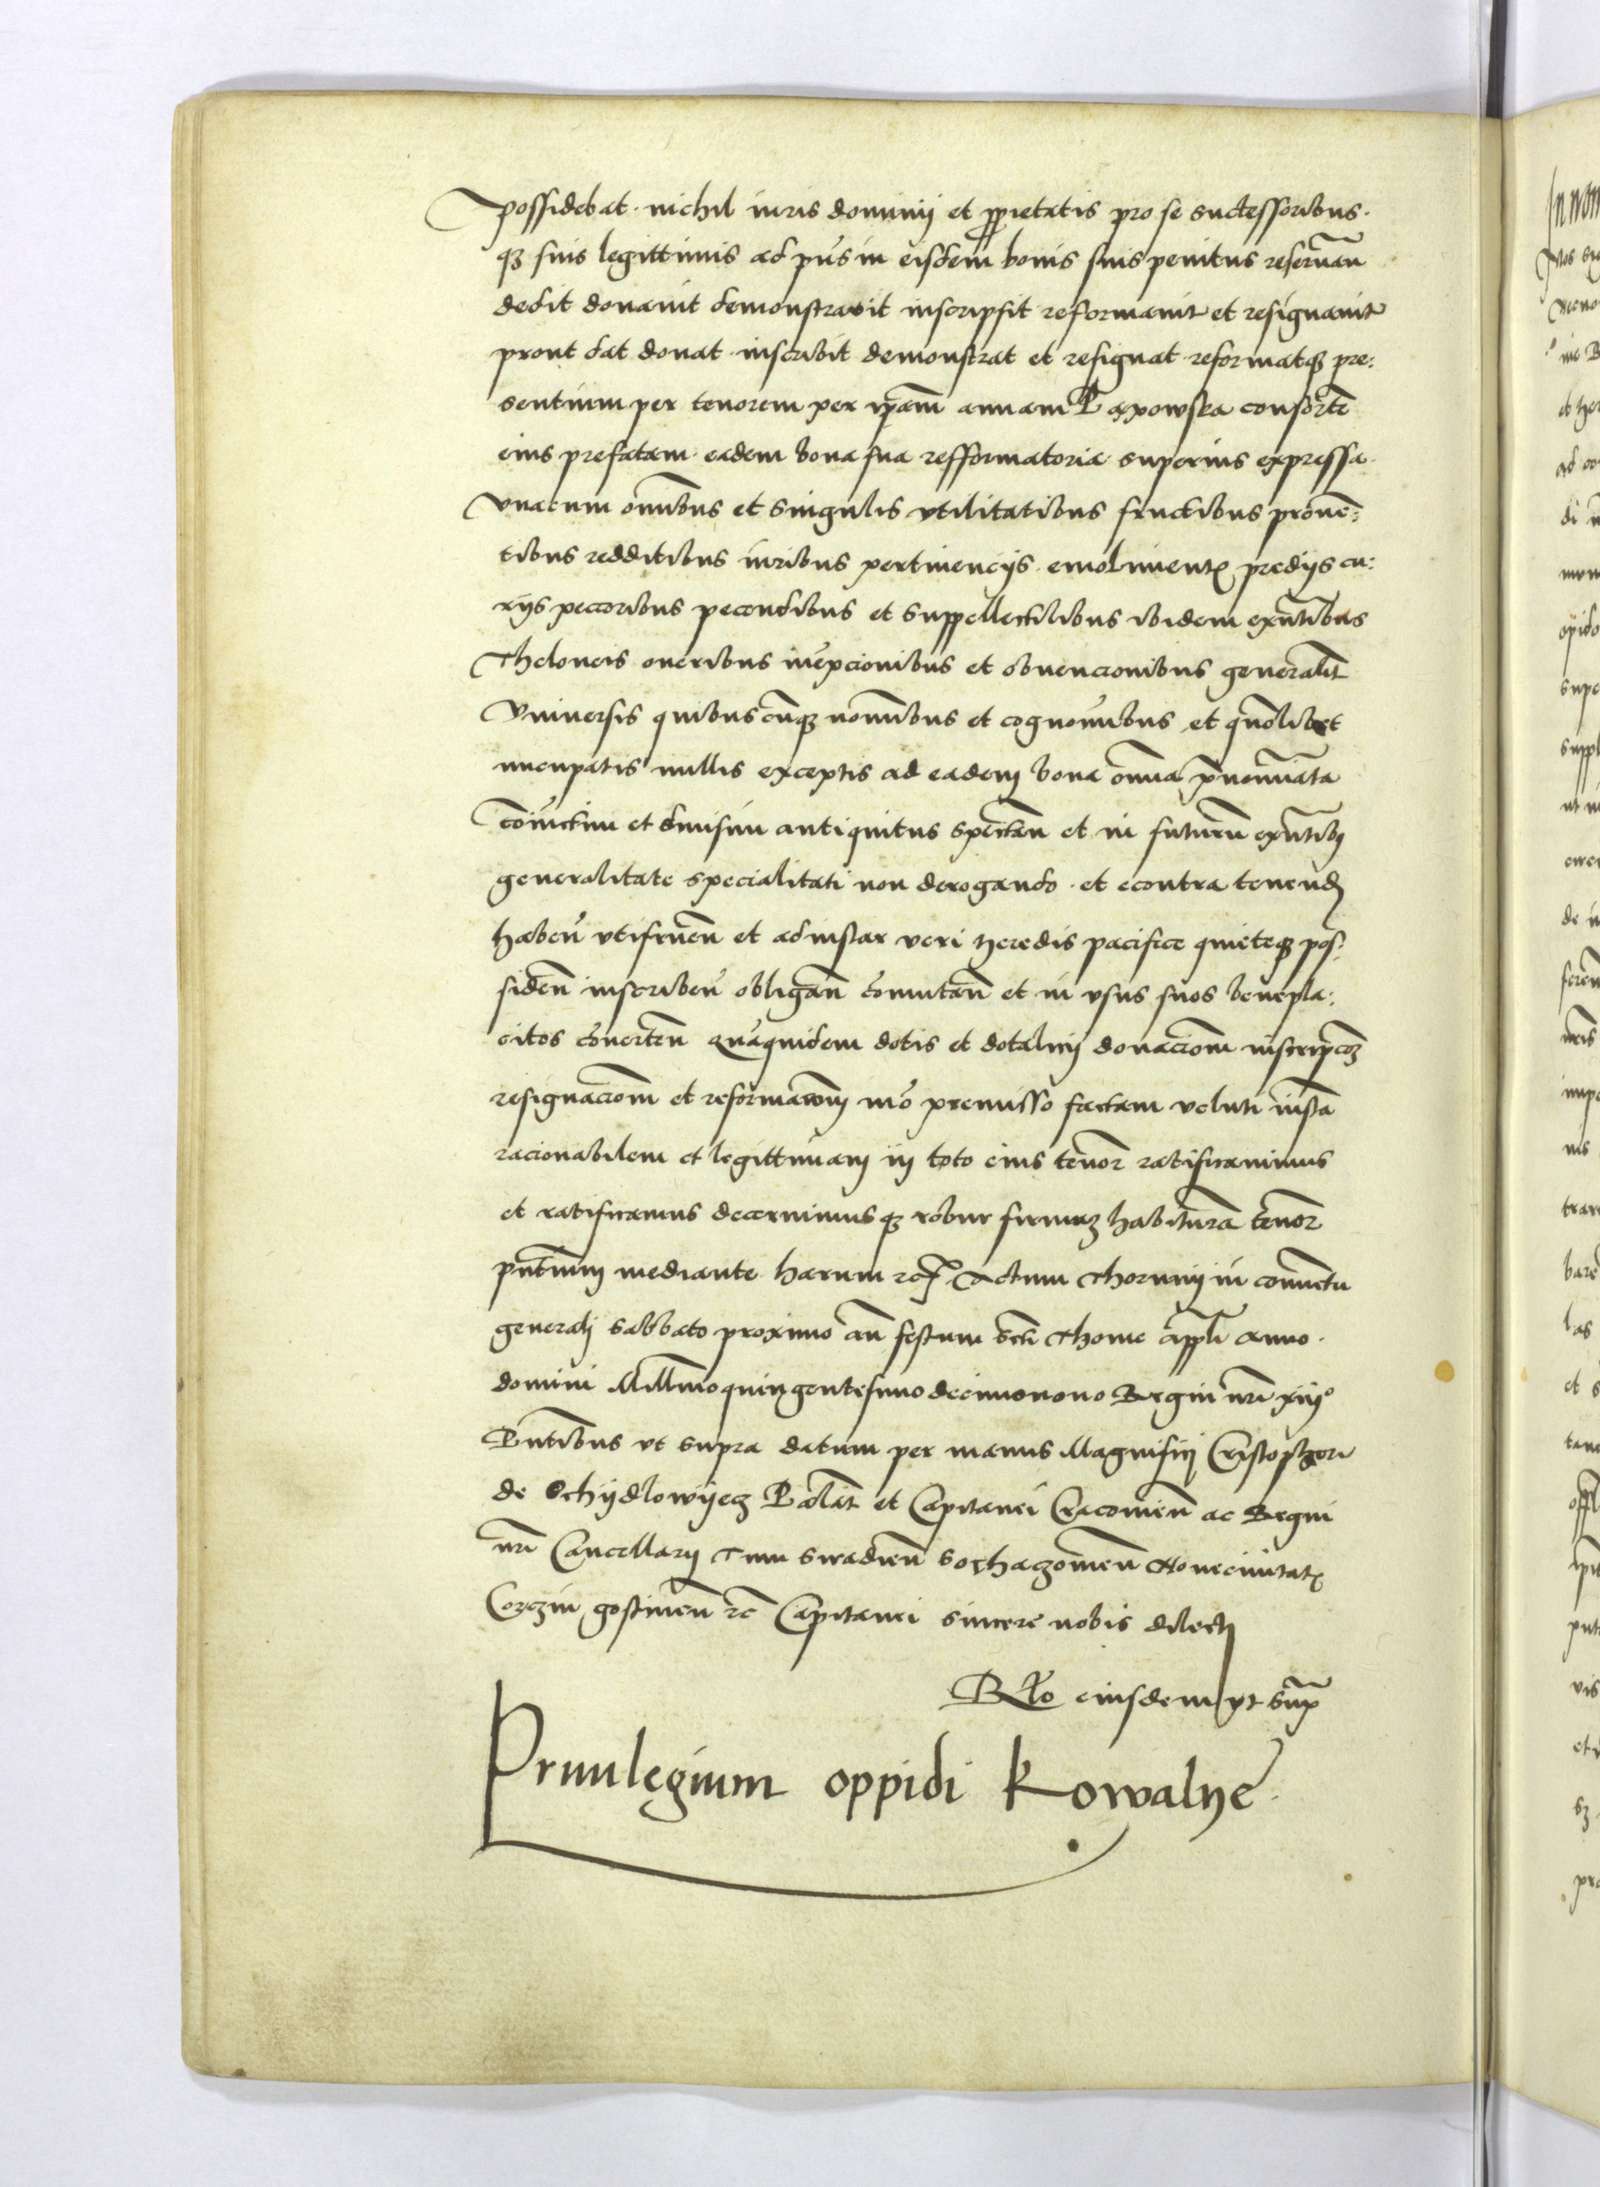 possidebat. nichil iuris dominij et pprietatis pro se successoribus.
q3 suis legittimis ad pñs in eisdem bonis suis penitus reseruañ
dedit donauit demonstrauit inscripsit reformauit et resignauit
prout dat donat inscribit demonstrat et resignat reformatq3 pre:
sentium per tenorem per ipam annam consorte
eius prefatam. eadem bona sua refformatoria superius expressa.
vnacum omibus et singulis vtilitatibus fructibus prouē:
tibus redditibus iuribus pertinencijs. emoliment prediis cu:
rijs peccoribus pecoudibus et suppellectilibus ibidem exñtibus
Theloneis oneribus et obuencionibus generalit
Vniuersis quibuscūq3 nomibus et cognomibus et quolibet
nuncupatis nullis exceptis ad eadem bona omia pnomiata
coiuctim et diuisim antiquitus specteñ et in futurū exñtibus
generalitate specialitati non derogando. et econtra tenend
habeñ vtifrueñ et adinstar veri heredis pacifice quieteq3 pos:
sideñ inscribeñ obligañ comutañ et in vsus suos benepla:
citos conerteñ quaquidem dotis et dotalicij donacionem inscripcoem
resignacionem et reformacoem mō premisso factam veluti iusta
racionabilem et legittimam in toto eius tenore ratificauimus
et ratificamus decernimusq3 robur firmum habitura tenore
pñtium mediante harum Actum Thorunij in conuentu
generali sabbato proximo añ festum scti Thome appli Anno.
domini Millmoquingentesimo decimonono Regni nri xiij°
Pñtibus vt supra datum per manus Magnifici Cristopheri
de Schijdlowijecz Palat et Capitanei Cracouieñ ac Regni
nri Cancellarij Tum siradieñ sochaczouieñ Nouecivitat
Corczin gostineñ etc Capitanei sincere nobis dilecti
Rlo eiusdem vt supra
Priuilegium oppidi Kowalye.